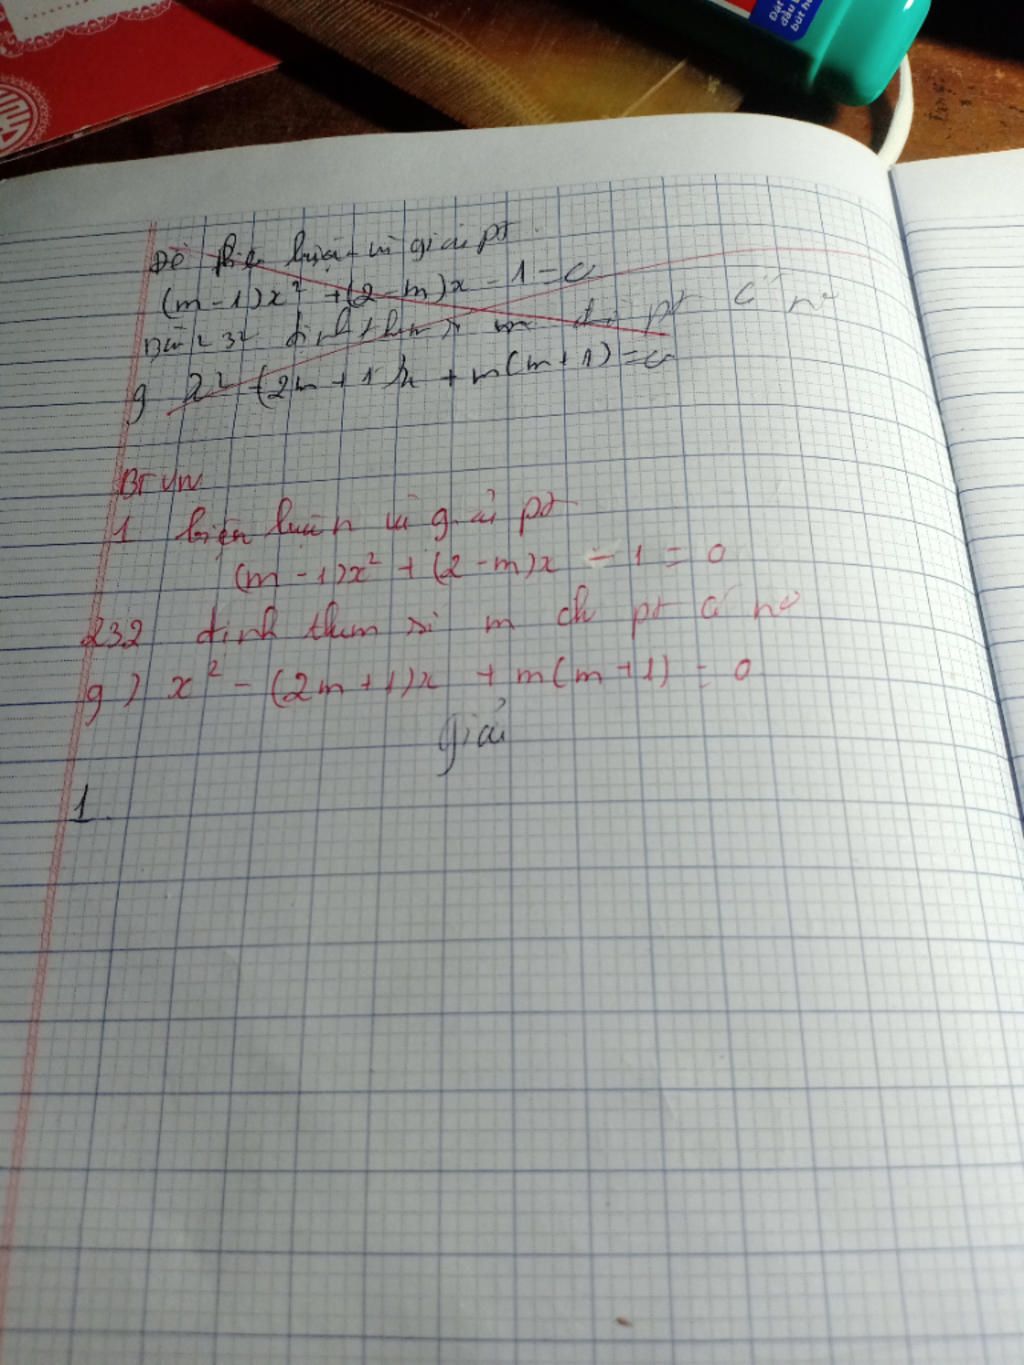 Đặt
dấu
bút h
Đề biện luận và giải pt
(m - 1)x² + (2 - m)x - 1 = 0
Bài 232 định tham số m để pt có no
g x² - (2m + 1)x + m(m + 1) = 0
BTVN
1 biện luận và giải pt
(m - 1)x² + (2 - m)x - 1 = 0
232 định tham số m ch pt có no
g) x² - (2m + 1)x + m(m + 1) = 0
giải
1.